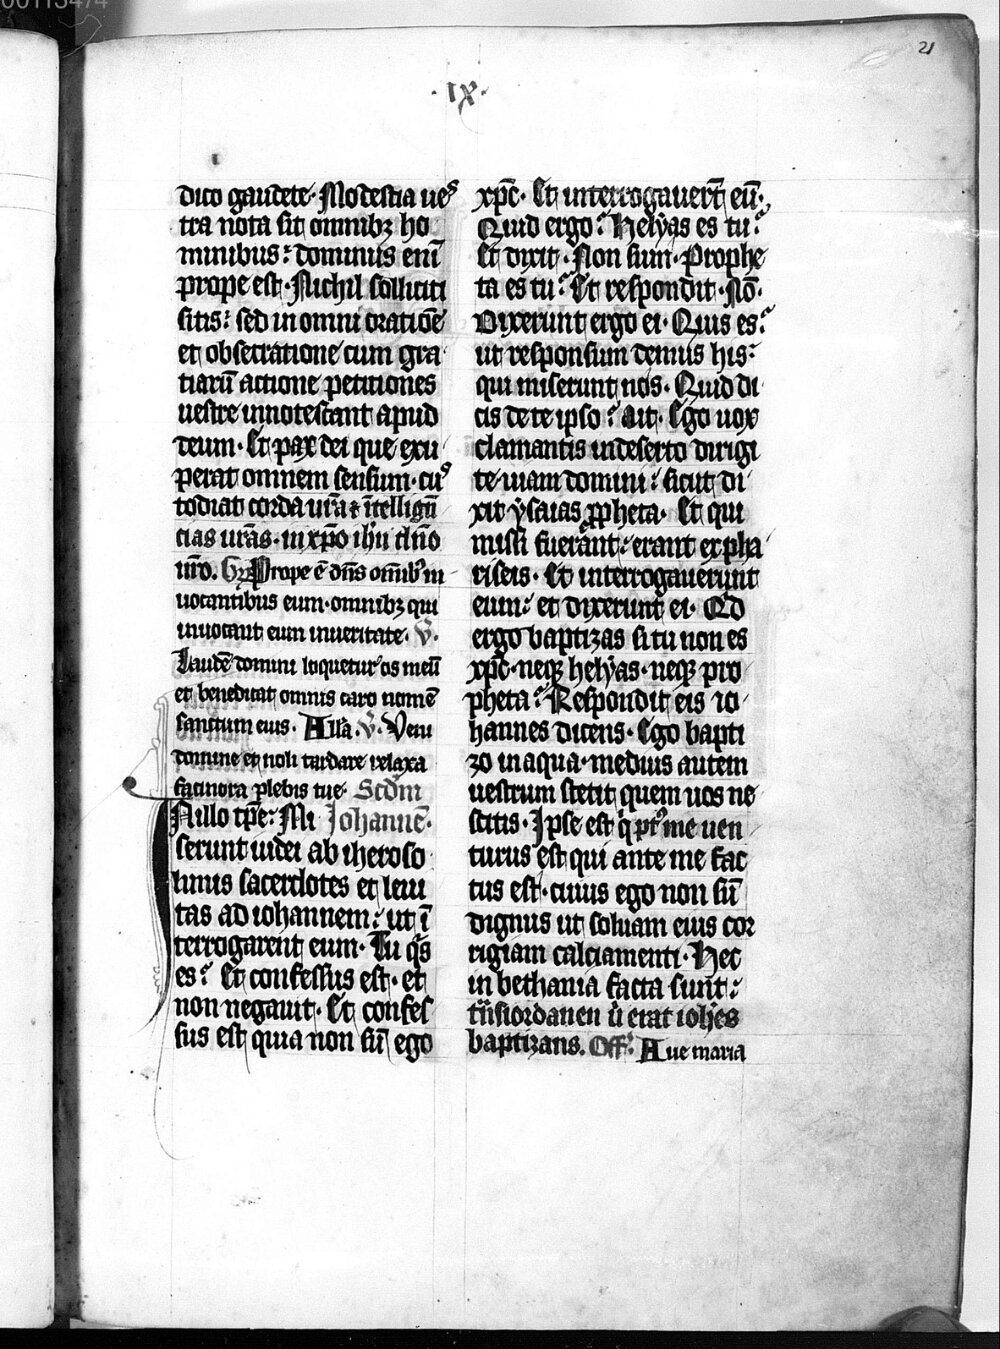 00113474
21
·IX·
dico gaudete· Modestia ueſ
tra nota ſit omnibꝫ ho
minibus: dominus enī
prope est· Nichil ſolliciti
ſitis: ſed in omni oratiōe
et obſecratione cum gra
tiarū actione petitiones
ueſtre innoteſcant apud
deum· Et pax dei que exu
perat omnem ſenſum· cuſ
todiat corda ur̄a ⁊ ītelligē
cias ur̄as· in xp̄o ih̄u dn̄o
nr̄o. Gr̄ Prope ē dn̄s om̄ibꝰ in
uocantibus eum· omnibꝫ qui
inuocant eum in ueritate· V̄.
Laudē domini loquetur os meū
et benedicat omnis caro nomē
ſanctum eius· All'a· V̄· Veni
domine et noli tardare relaxa
facinora plebis tue· Scd̄m
In illo tp̄e: Mi Johannē·
ſerunt iudei ab iheroſo
limis ſacerdotes et leui
tas ad iohannem: ut ī
terrogarent eum· Tu q̄s
es? Et confeſſus est· et
non negauit· Et confeſ
ſus est quia non ſū ego
xp̄c· Et interrogauerūt eū·
Quid ergo? Helyas es tu?
Et dixit· Non ſum· Prophe
ta es tu? Et reſpondit· Nō·
Dixerunt ergo ei· Quis es?
ut reſponſum demus his:
qui miſerunt nos· Quid di
cis de te ipſo? Ait· Ego uox
clamantis in deſerto dirigi
te uiam domini: ſicut di
xit yſaias ꝓpheta· Et qui
miſſi fuerant: erant ex pha
riſeis· Et interrogauerunt
eum: et dixerunt ei· Qd
ergo baptizas ſi tu non es
xp̄c· neqꝫ helyas· neqꝫ pro
pheta? Reſpondit eis io
hannes dicens· Ego bapti
zo in aqua· medius autem
ueſtrum ſtetit quem uos ne
ſcitis· Ipſe est q̄ pꝰt me uen
turus est qui ante me fac
tus est· cuius ego non ſū
dignus ut ſoluam eius cor
rigiam calciamenti· Hec
in bethania facta ſunt:
tn̄ſiordanen ū erat ioh̄es
baptizans. Off̄: Aue maria